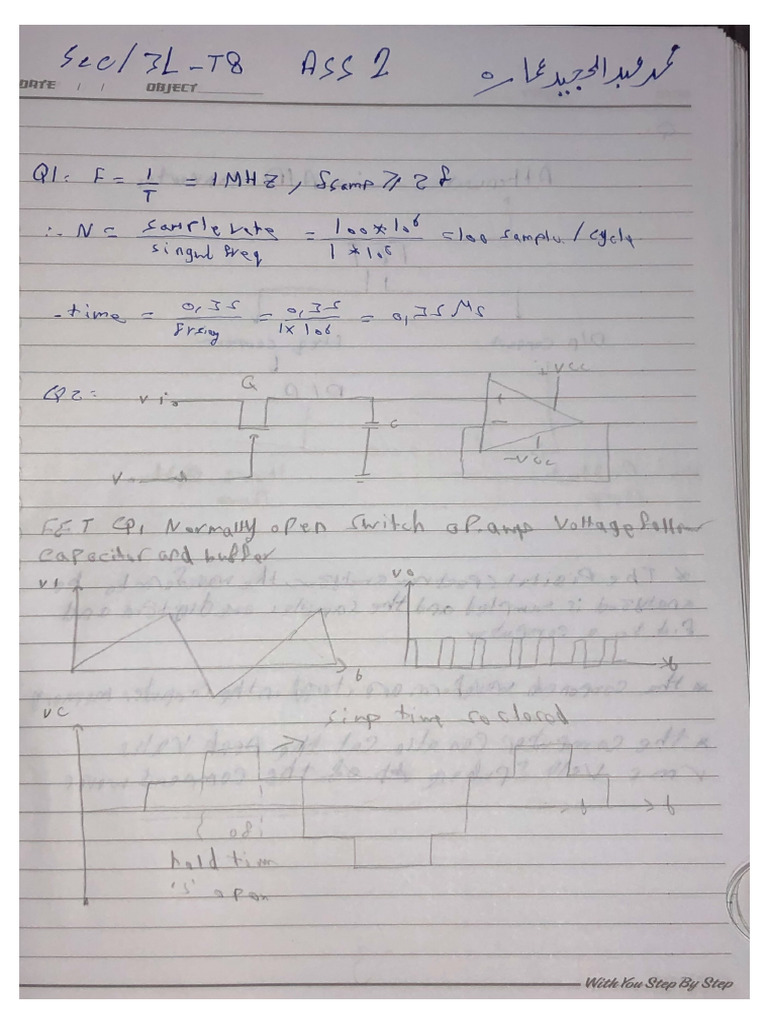 Sec/3L-T8 ASS 2 محمد عبدالمجيد عماره
DATE / / OBJECT
Q1: F = 1/T = 1MHZ, fsamp ≥ 2f
∴ N = sample rate / signal freq = 100×10⁶ / 1×10⁶ = 100 sample / cycle
- time = 0,35 / freq = 0,35 / 1×10⁶ = 0,35 Ms
Q2: Vi Q C + - +VCC -VCC
V
FET Normally open switch op.amp Voltage follower
capacitor and buffer
V1 t V0 t
VC
samp time so closed
t
hold time
's' open
With You Step By Step